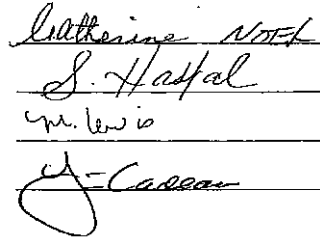 Catherine Noel
S. Haspal
M. Lewis
Y-Cadeau